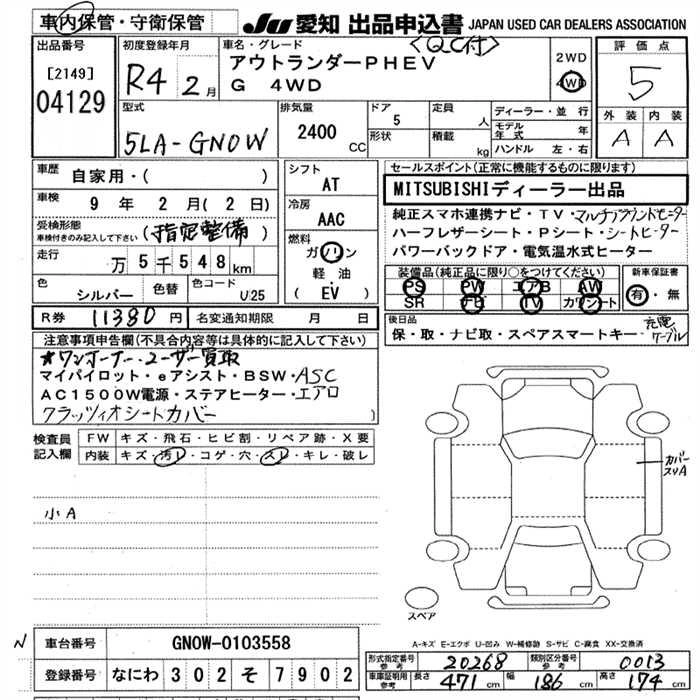 車内保管・守衛保管
JU 愛知 出品申込書 JAPAN USED CAR DEALERS ASSOCIATION
出品番号
[2149]
04129
初度登録年月
R4 2月
車名・グレード
<QC付>
アウトランダーPHEV
G 4WD
2WD
4WD
評価点
5
外装 内装
A A
型式
5LA-GN0W
排気量
2400 CC
ドア 5
形状
定員 人
積載 kg
ディーラー・並行
モデル年式 年
ハンドル 左・右
車歴
自家用・( )
車検
9年2月(2日)
受検形態
車検付きのみ記入して下さい
(指定整備)
走行
万5千548km
色
シルバー
色替
色コード
U25
シフト
AT
冷房
AAC
燃料
ガソリン
軽油
(EV)
セールスポイント(正常に機能するものに限ります)
MITSUBISHIディーラー出品
純正スマホ連携ナビ・TV・マルチアラウンドモニター
ハーフレザーシート・Pシート・シートヒーター
パワーバックドア・電気温水式ヒーター
装備品(純正品に限り○をつけてください)
PS PW エアB AW
SR ナビ TV カワシート
新車保証書
有・無
R券 11380円
名変通知期限 月 日
後日品
保・取・ナビ取・スペアスマートキー・充電ケーブル
注意事項申告欄(不具合内容等は具体的に記入して下さい)
★ワンオーナー・ユーザー買取
マイパイロット・eアシスト・BSW・ASC
AC1500W電源・ステアヒーター・エアロ
クラッツィオシートカバー
検査員記入欄
FW キズ・飛石・ヒビ割・リペア跡・X要
内装 キズ・汚レ・コゲ・穴・スレ・キレ・破レ
小A
カバー
スリA
スペア
A-キズ E-エクボ U-凹み W-補修跡 S-サビ C-腐食 XX-交換済
N
車台番号 GN0W-0103558
登録番号 なにわ 302 そ 7902
形式指定番号 参考 20268
類別区分番号 参考 0013
車庫証明用 参考 長さ 471cm 幅 186cm 高さ 174cm